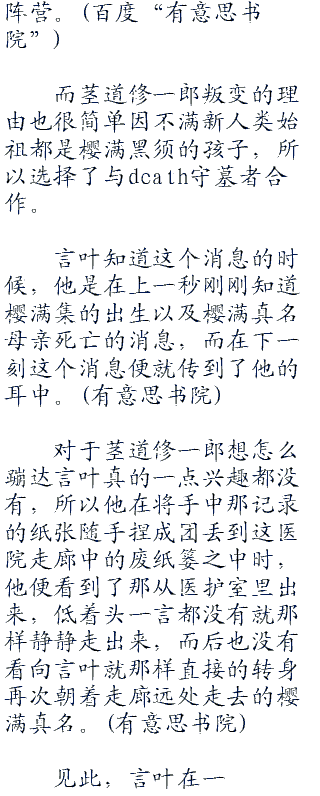 阵营。(百度“有意思书
院”)
而茎道修一郎叛变的理
由也很简单因不满新人类始
祖都是樱满黑须的孩子，所
以选择了与dcath守墓者合
作。
言叶知道这个消息的时
候，他是在上一秒刚刚知道
樱满集的出生以及樱满真名
母亲死亡的消息，而在下一
刻这个消息便就传到了他的
耳中。(有意思书院)
对于茎道修一郎想怎么
蹦达言叶真的一点兴趣都没
有，所以他在将手中那记录
的纸张随手捏成团丢到这医
院走廊中的废纸篓之中时，
他便看到了那从医护室里出
来，低着头一言都没有就那
样静静走出来，而后也没有
看向言叶就那样直接的转身
再次朝着走廊远处走去的樱
满真名。(有意思书院)
见此，言叶在一